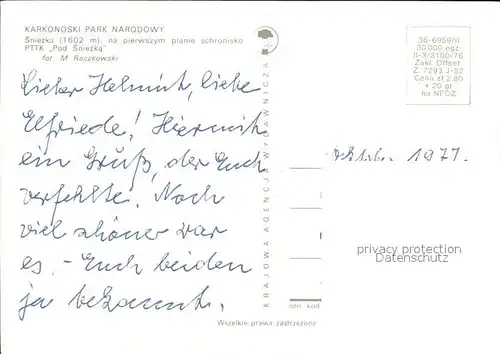 KARKONOSKI PARK NARODOWY
Śnieżka (1602 m), na pierwszym planie schronisko
PTTK „Pod Śnieżką"
fot M Raczkowski
Lieber Helmut, liebe
Elfriede! Hiermit
ein Gruß, der Euch
verfehlte. Noch
viel schöner war
es. - Euch beiden
ja bekannt.
KRAJOWA AGENCJA WYDAWNICZA
56-6959/II
30 000 egz
Zakł Offset
Cena zł 2.80
+ 20 gr
na NFOZ
Oktob. 1977.
privacy protection
Datenschutz
ozn kod
Wszelkie prawa zastrzeżone